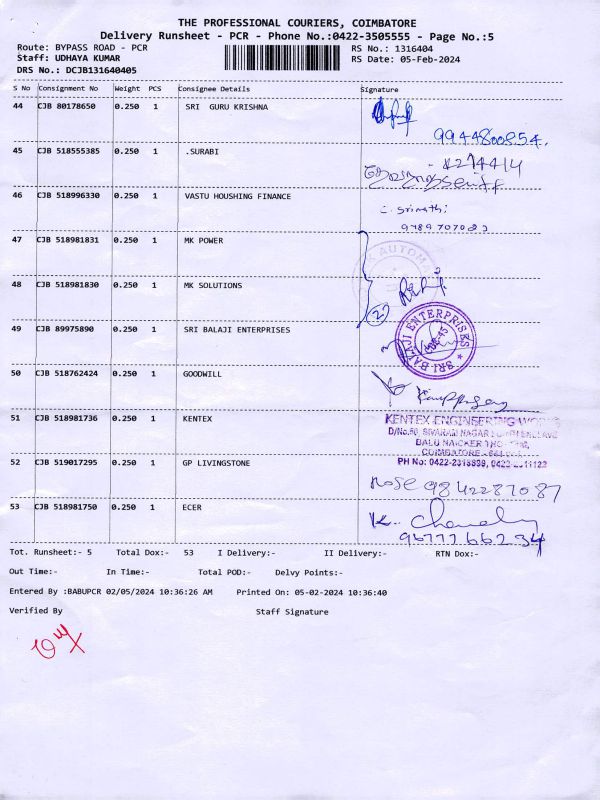 THE PROFESSIONAL COURIERS, COIMBATORE
Delivery Runsheet - PCR - Phone No.:0422-3505555 - Page No.:5
Route: BYPASS ROAD - PCR RS No.: 1316404
Staff: UDHAYA KUMAR RS Date: 05-Feb-2024
DRS No.: DCJB131640405
S No Consignment No Weight PCS Consignee Details Signature
44 CJB 80178650 0.250 1 SRI GURU KRISHNA
9944800854.
45 CJB 518555385 0.250 1 .SURABI
46 CJB 518996330 0.250 1 VASTU HOUSHING FINANCE
C. Srimathi
9789707023
47 CJB 518981831 0.250 1 MK POWER
48 CJB 518981830 0.250 1 MK SOLUTIONS
2
49 CJB 89975890 0.250 1 SRI BALAJI ENTERPRISES
SRI BALAJI ENTERPRISES
50 CJB 518762424 0.250 1 GOODWILL
51 CJB 518981736 0.250 1 KENTEX
KENTEX ENGINEERING WORKS
D/No.50, SIVARAM NAGAR
BALU NAICKER
COIMBATORE
PH No: 0422-2318899, 0422
52 CJB 519017295 0.250 1 GP LIVINGSTONE
Rose 9842287087
53 CJB 518981750 0.250 1 ECER
K.
9677766234
Tot. Runsheet:- 5 Total Dox:- 53 I Delivery:- II Delivery:- RTN Dox:-
Out Time:- In Time:- Total POD:- Delvy Points:-
Entered By :BABUPCR 02/05/2024 10:36:26 AM Printed On: 05-02-2024 10:36:40
Verified By Staff Signature